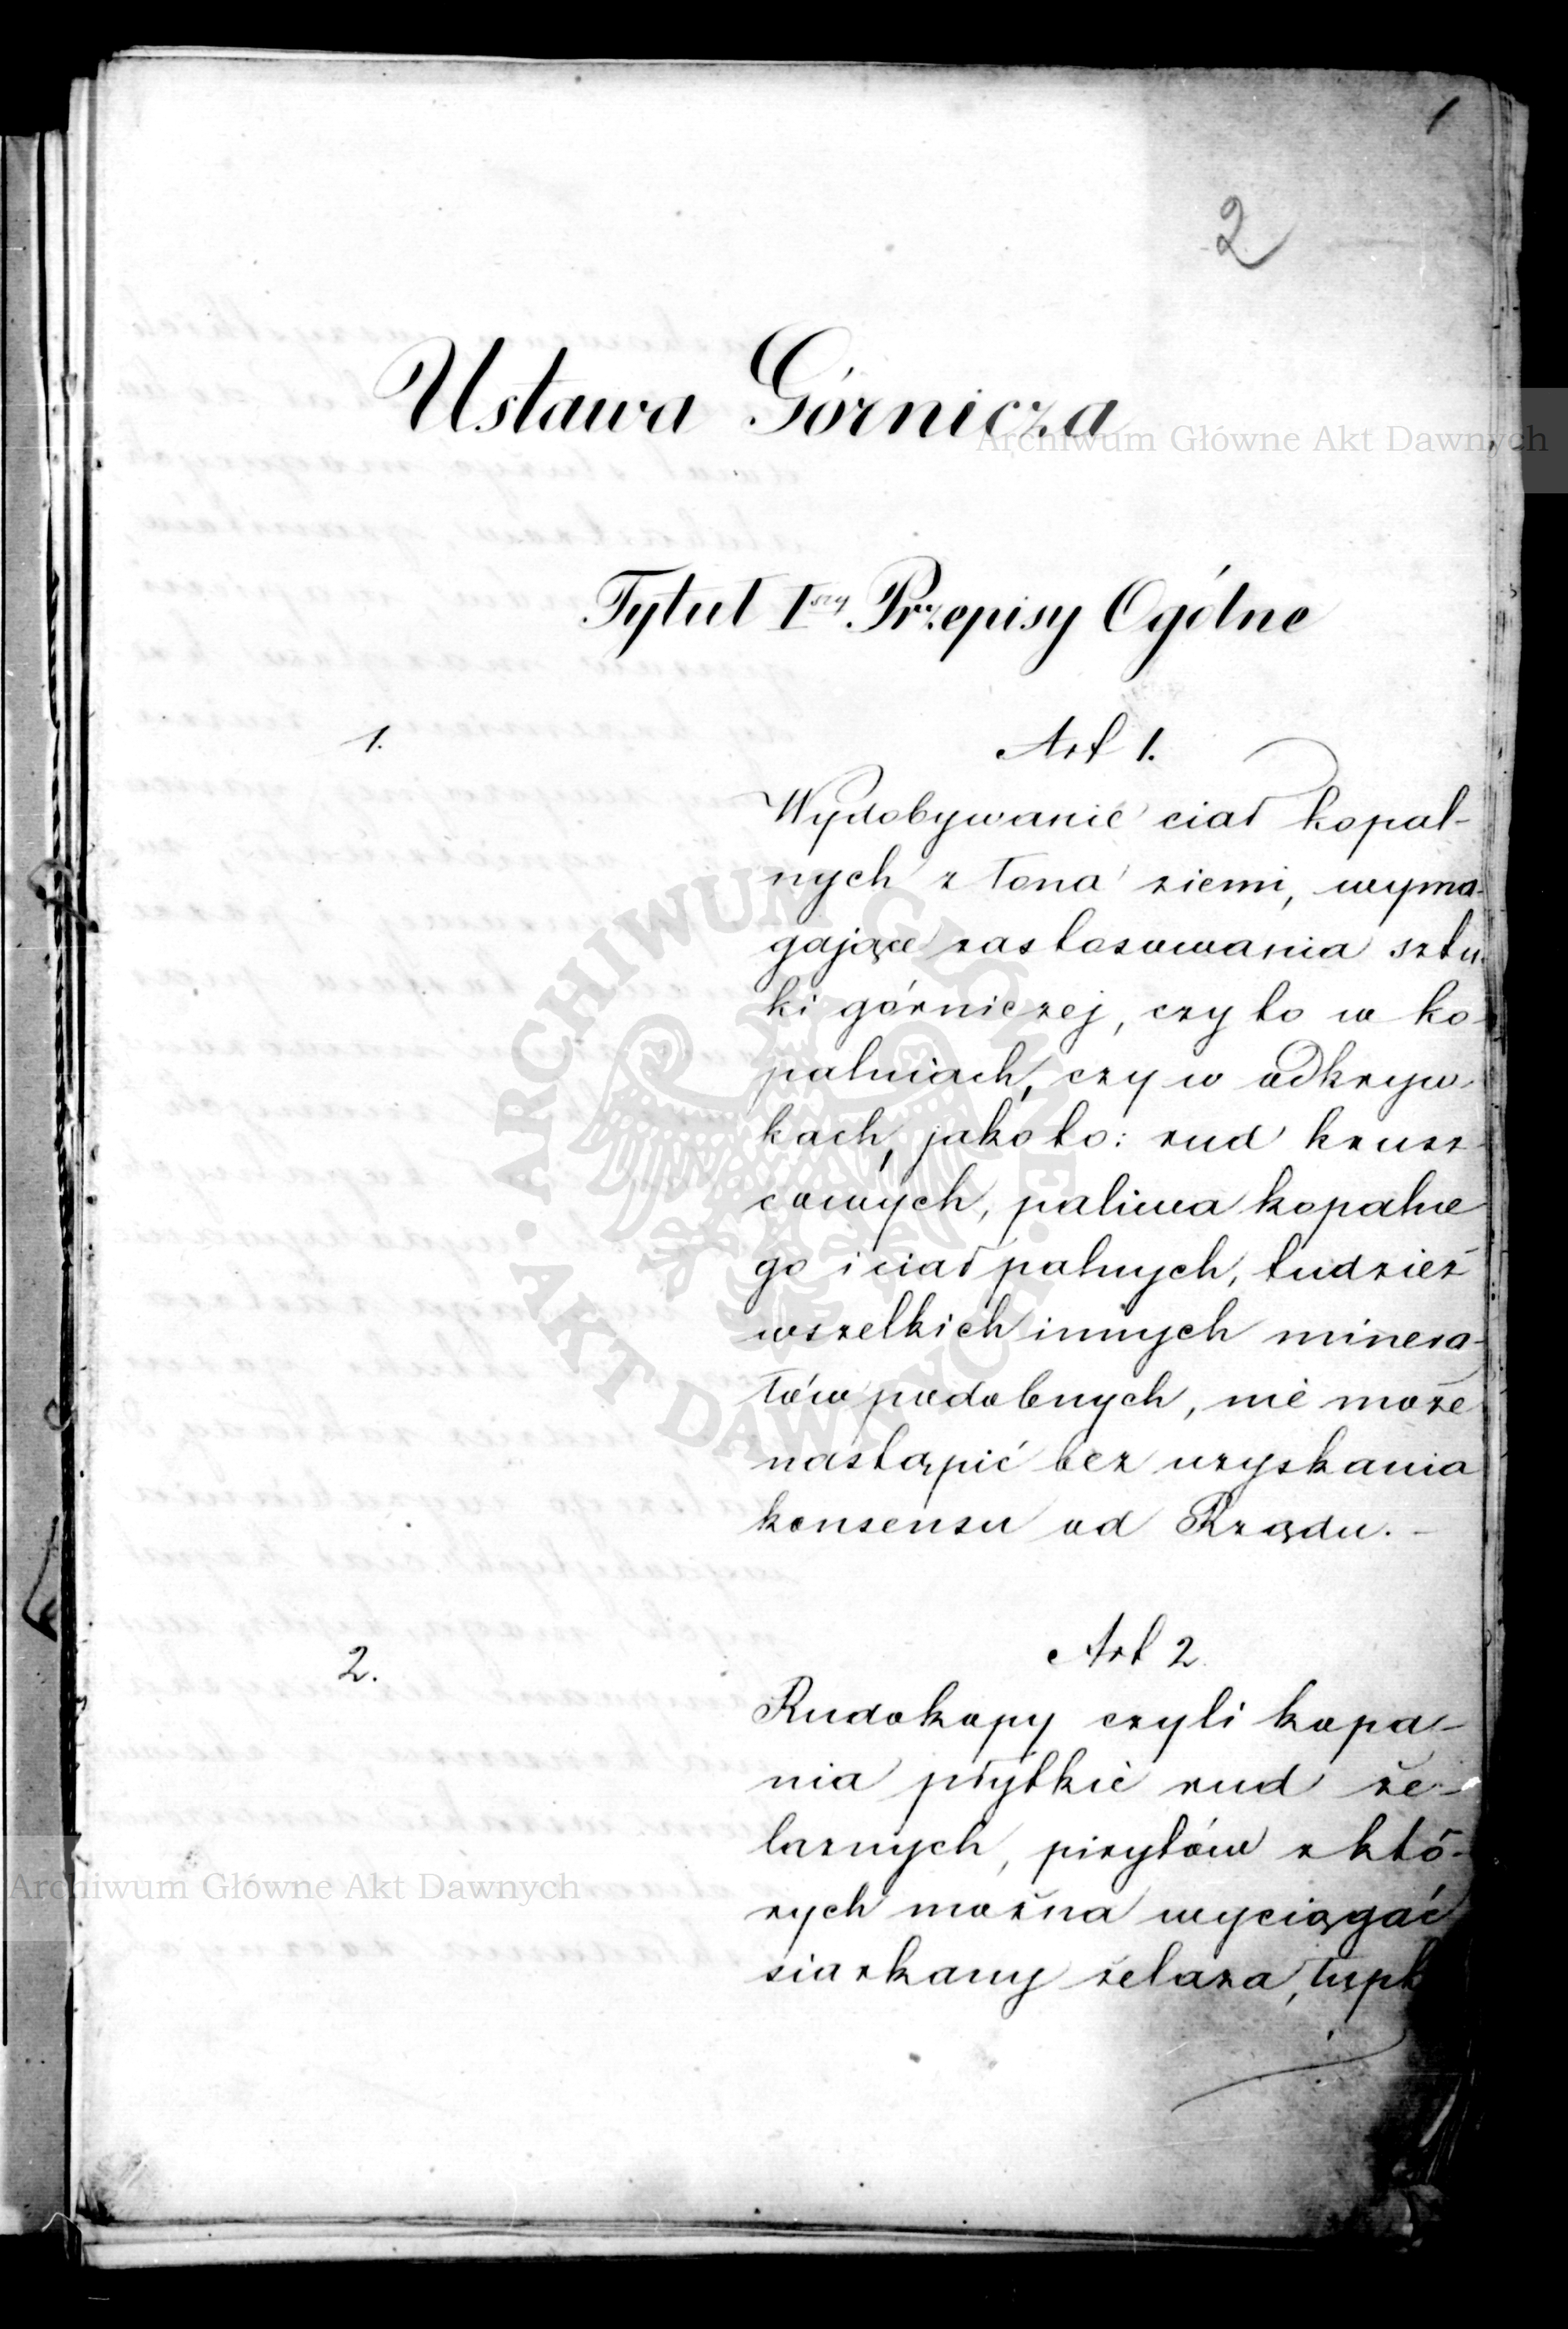 1
2
Ustawa Górnicza
Archiwum Główne Akt Dawnych
Tytuł Iszy. Przepisy Ogólne
1.
Art 1.
Wydobywanie ciał kopal-
nych z łona ziemi, wyma-
gające zastosowania sztu-
ki górniczej, czy to w ko-
palniach, czy w odkryw-
kach, jako to: rud krusz-
cowych, paliwa kopalne
go i ciał palnych, tudzież
wszelkich innych minera-
łów podobnych, nie może
nastąpić bez uzyskania
konsensu od Rządu. –
ARCHIWUM GŁÓWNE
AKT DAWNYCH
2.
Art 2.
Rudokopy czyli kopa-
nia płytkie rud że-
laznych, pirytów z któ-
rych można wyciągać
siarkany żelaza,
Archiwum Główne Akt Dawnych